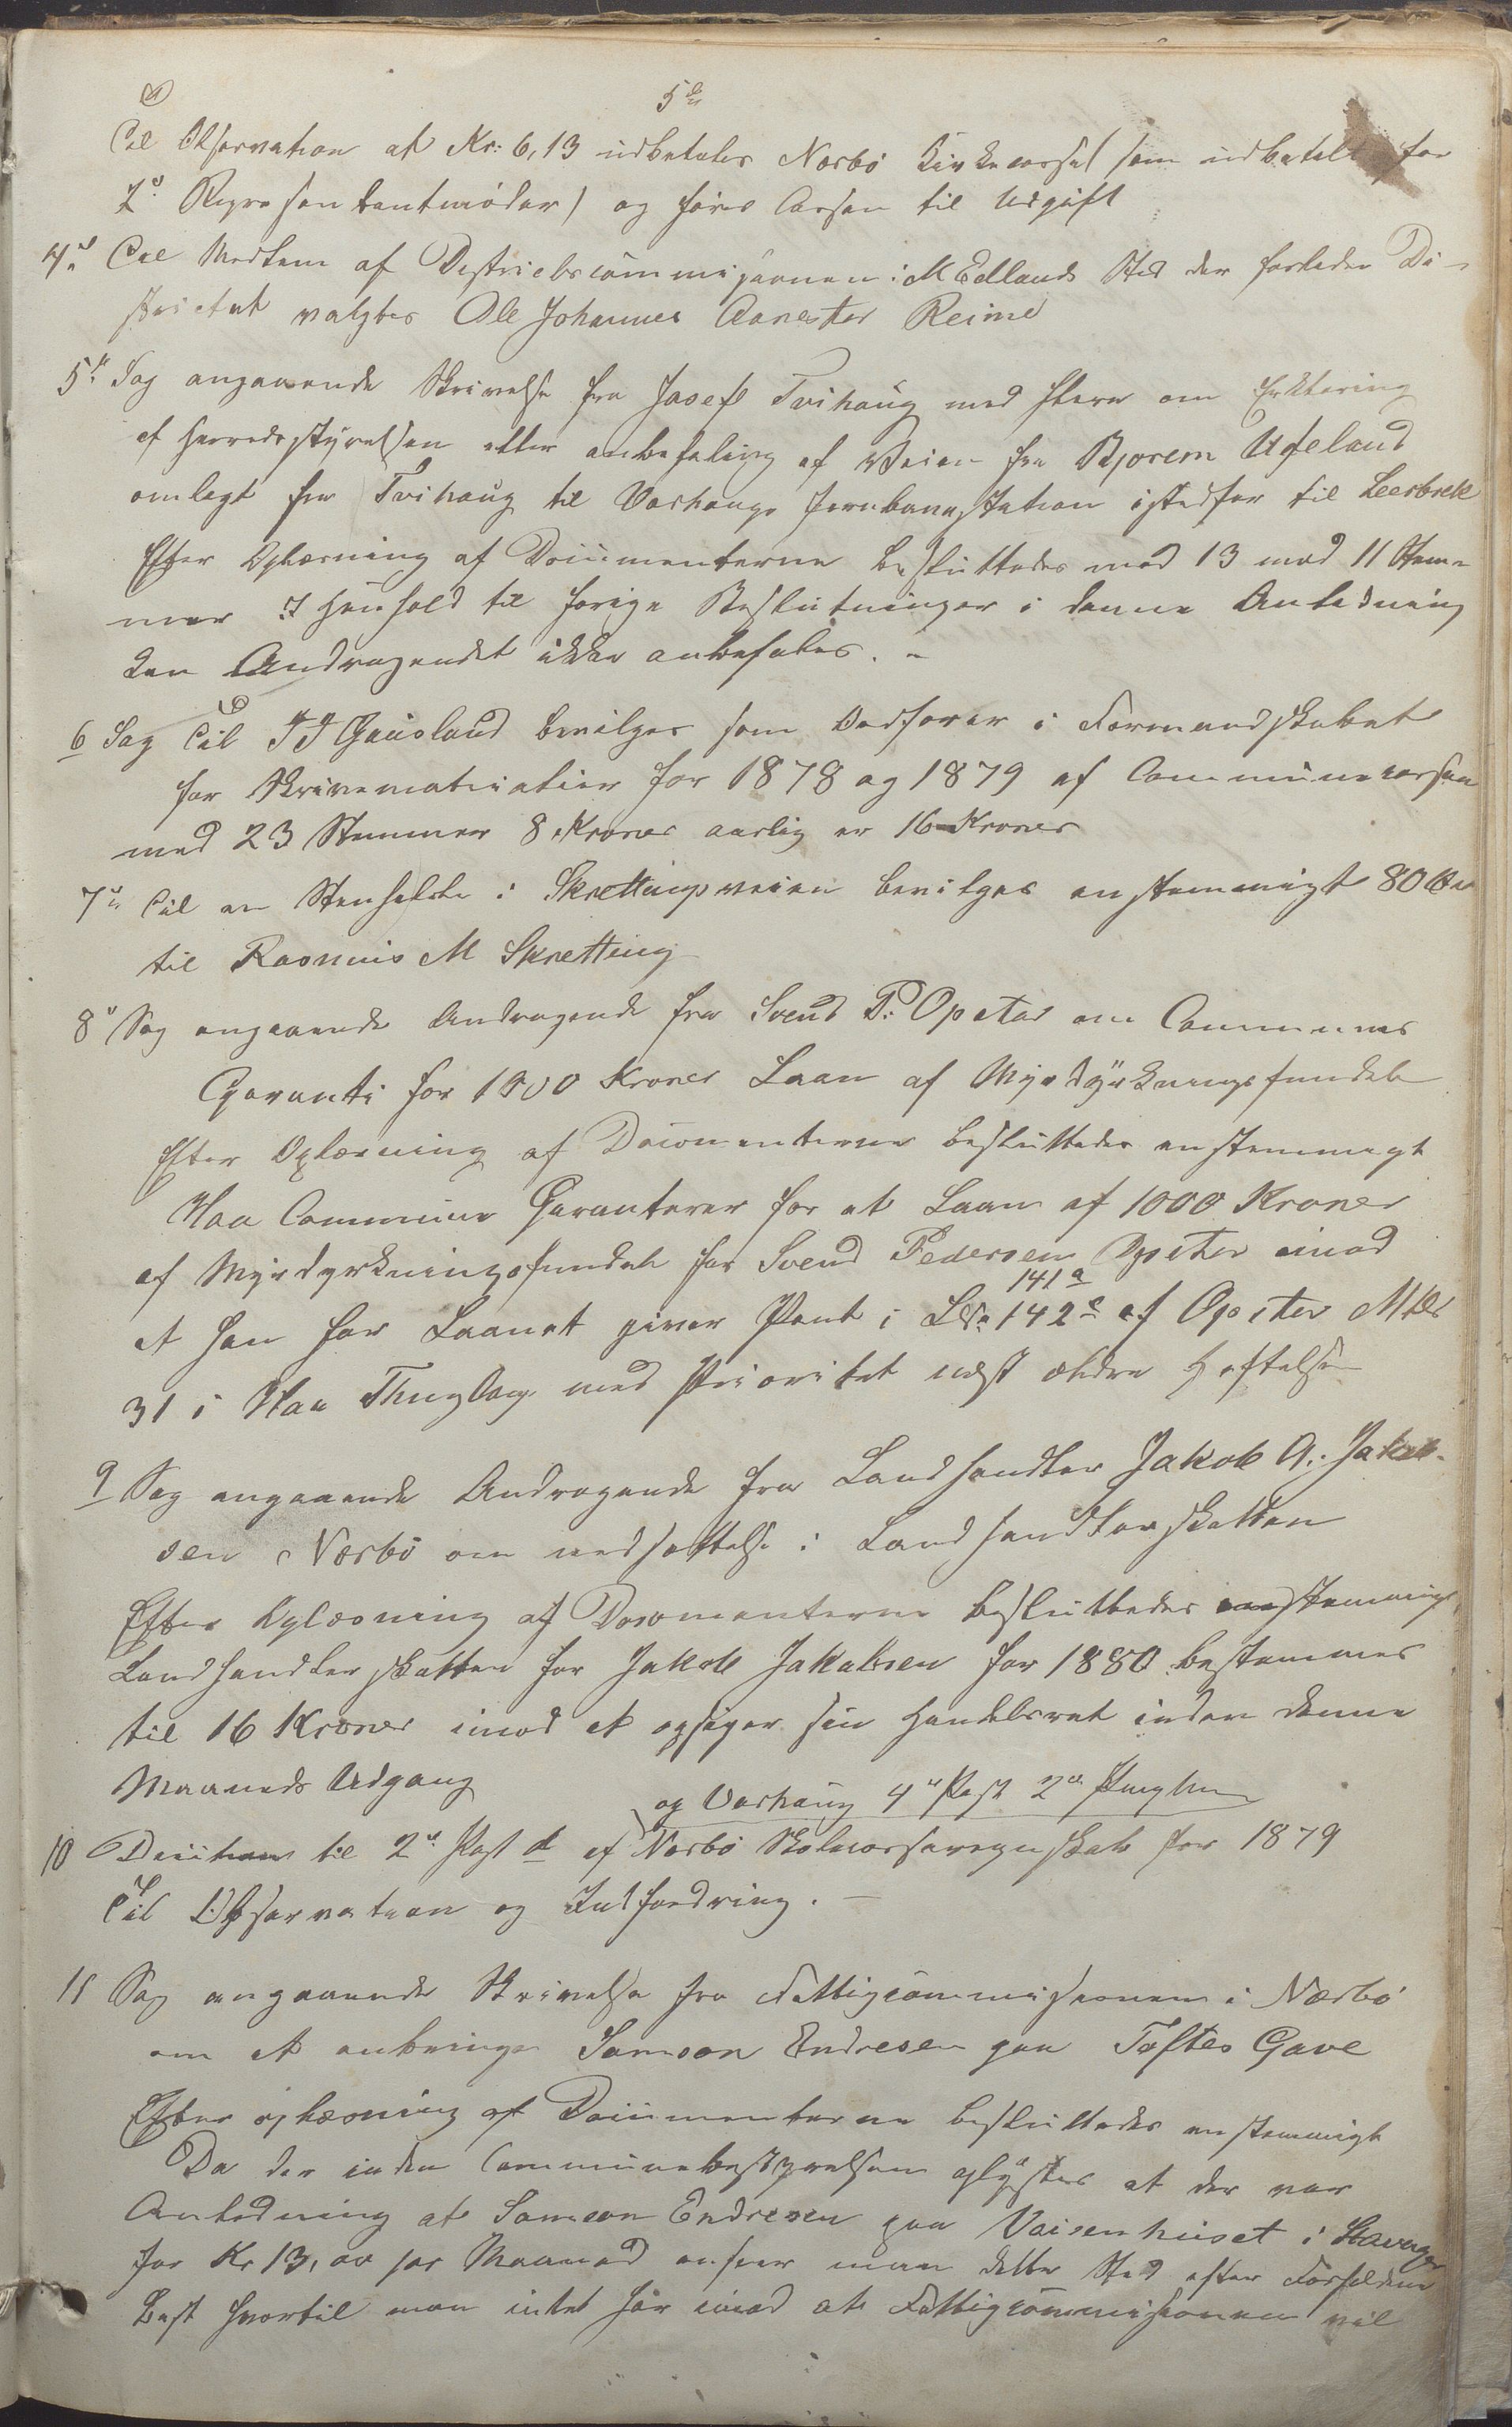 5de
Til Observation at Kr: 6,13 udbetales Nærbö Kirkecasse som udbetalt for
2de Repræsentantmöder) og före Cassen til Udgift
4de Til Medlem af Districtscommisionen i M Edlands Sted der forlader Di-
strictet valgtes Ole Johannes Aanestad Reime
5te Sag angaaende Skrivelse fra Josef Tvihaug med flere om Erklæring
af Herredsstyrelsen eller anbefaling af Veien fra Bjorem Ueland
omlagt fra Tvihaug til Varhaugs Jernbanestation istedfor til
Efter Oplæsning af Documenterne besluttedes med 13 mod 11 Stem-
mer I Henhold til forige Beslutninger i denne Anledning
kan Andragendet ikke anbefales. -
6 Sag Til T T Gausland bevilges som Ordförer i Formandskabet
for Skrivematrialier for 1878 og 1879 af Communecassen
med 23 Stemmer 8 Kroner aarlig er 16 Kroner
7de Til en Stenhælle i Skrettingsveien bevilges enstemmigt 80 Öre
til Rasmus M Skretting
8de Sag angaaende Andragende fra Svend P. Opstad om Communens
Garanti for 1000 Kroner Laan af Myrdyrkningsfondet
Efter Oplæsning af Documenterne besluttedes enstemmigt
Haa Commune Garanterer for et Laan af 1000 Kroner
af Myrdyrkningsfondet for Svend Pedersen Opstad imod
141 a
at han for Laanet giver Pant i LNo 142 e af Opstad MNo
31 i Haa Thinglag med Prioritet næst ældre Heftelser
9 Sag angaaende Andragende fra Landhandler Jakob A. Jakob-
sen Nærbö om nedsættelse i Landhandlerskatten
Efter Oplæsning af Documenterne besluttedes enstemmigt
Landhandlerskatten for Jakob Jakobsen for 1880 bestemmes
til 16 Kroner imod at opsiger sin Handelsret inden denne
Maaneds Udgang
og Varhaug 4de Post 2de
10 til 2de Post d af Nærbö Skolecasseregnskab for 1879
Til Observation og Indfordring. -
11 Sag angaaende Skrivelse fra Fattigcommisionen i Nærbö
om at anbringe Samson Endresen paa Toftes Gave
Efter oplæsning af Documenterne besluttedes enstemmigt
Da der inden Communebestyrelsen oplystes at der var
Anledning at Samson Endresen paa Vaisenhuset i Stavanger
for Kr 13, 00 per Maaned anseer man dette Sted efter Forholdene
Best hvortil man intet har imod at Fattigcommisionen vil